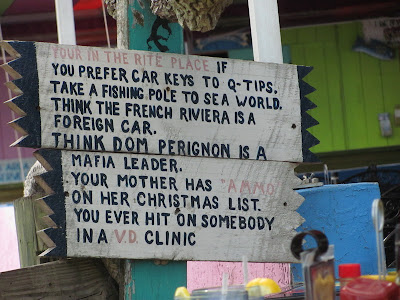 YOUR IN THE RITE PLACE IF
YOU PREFER CAR KEYS TO Q-TIPS.
TAKE A FISHING POLE TO SEA WORLD.
THINK THE FRENCH RIVEIRA IS A
FOREIGN CAR.
THINK DOM PERIGNON IS A
MAFIA LEADER.
YOUR MOTHER HAS "AMMO"
ON HER CHRISTMAS LIST.
YOU EVER HIT ON SOMEBODY
IN A V.D. CLINIC